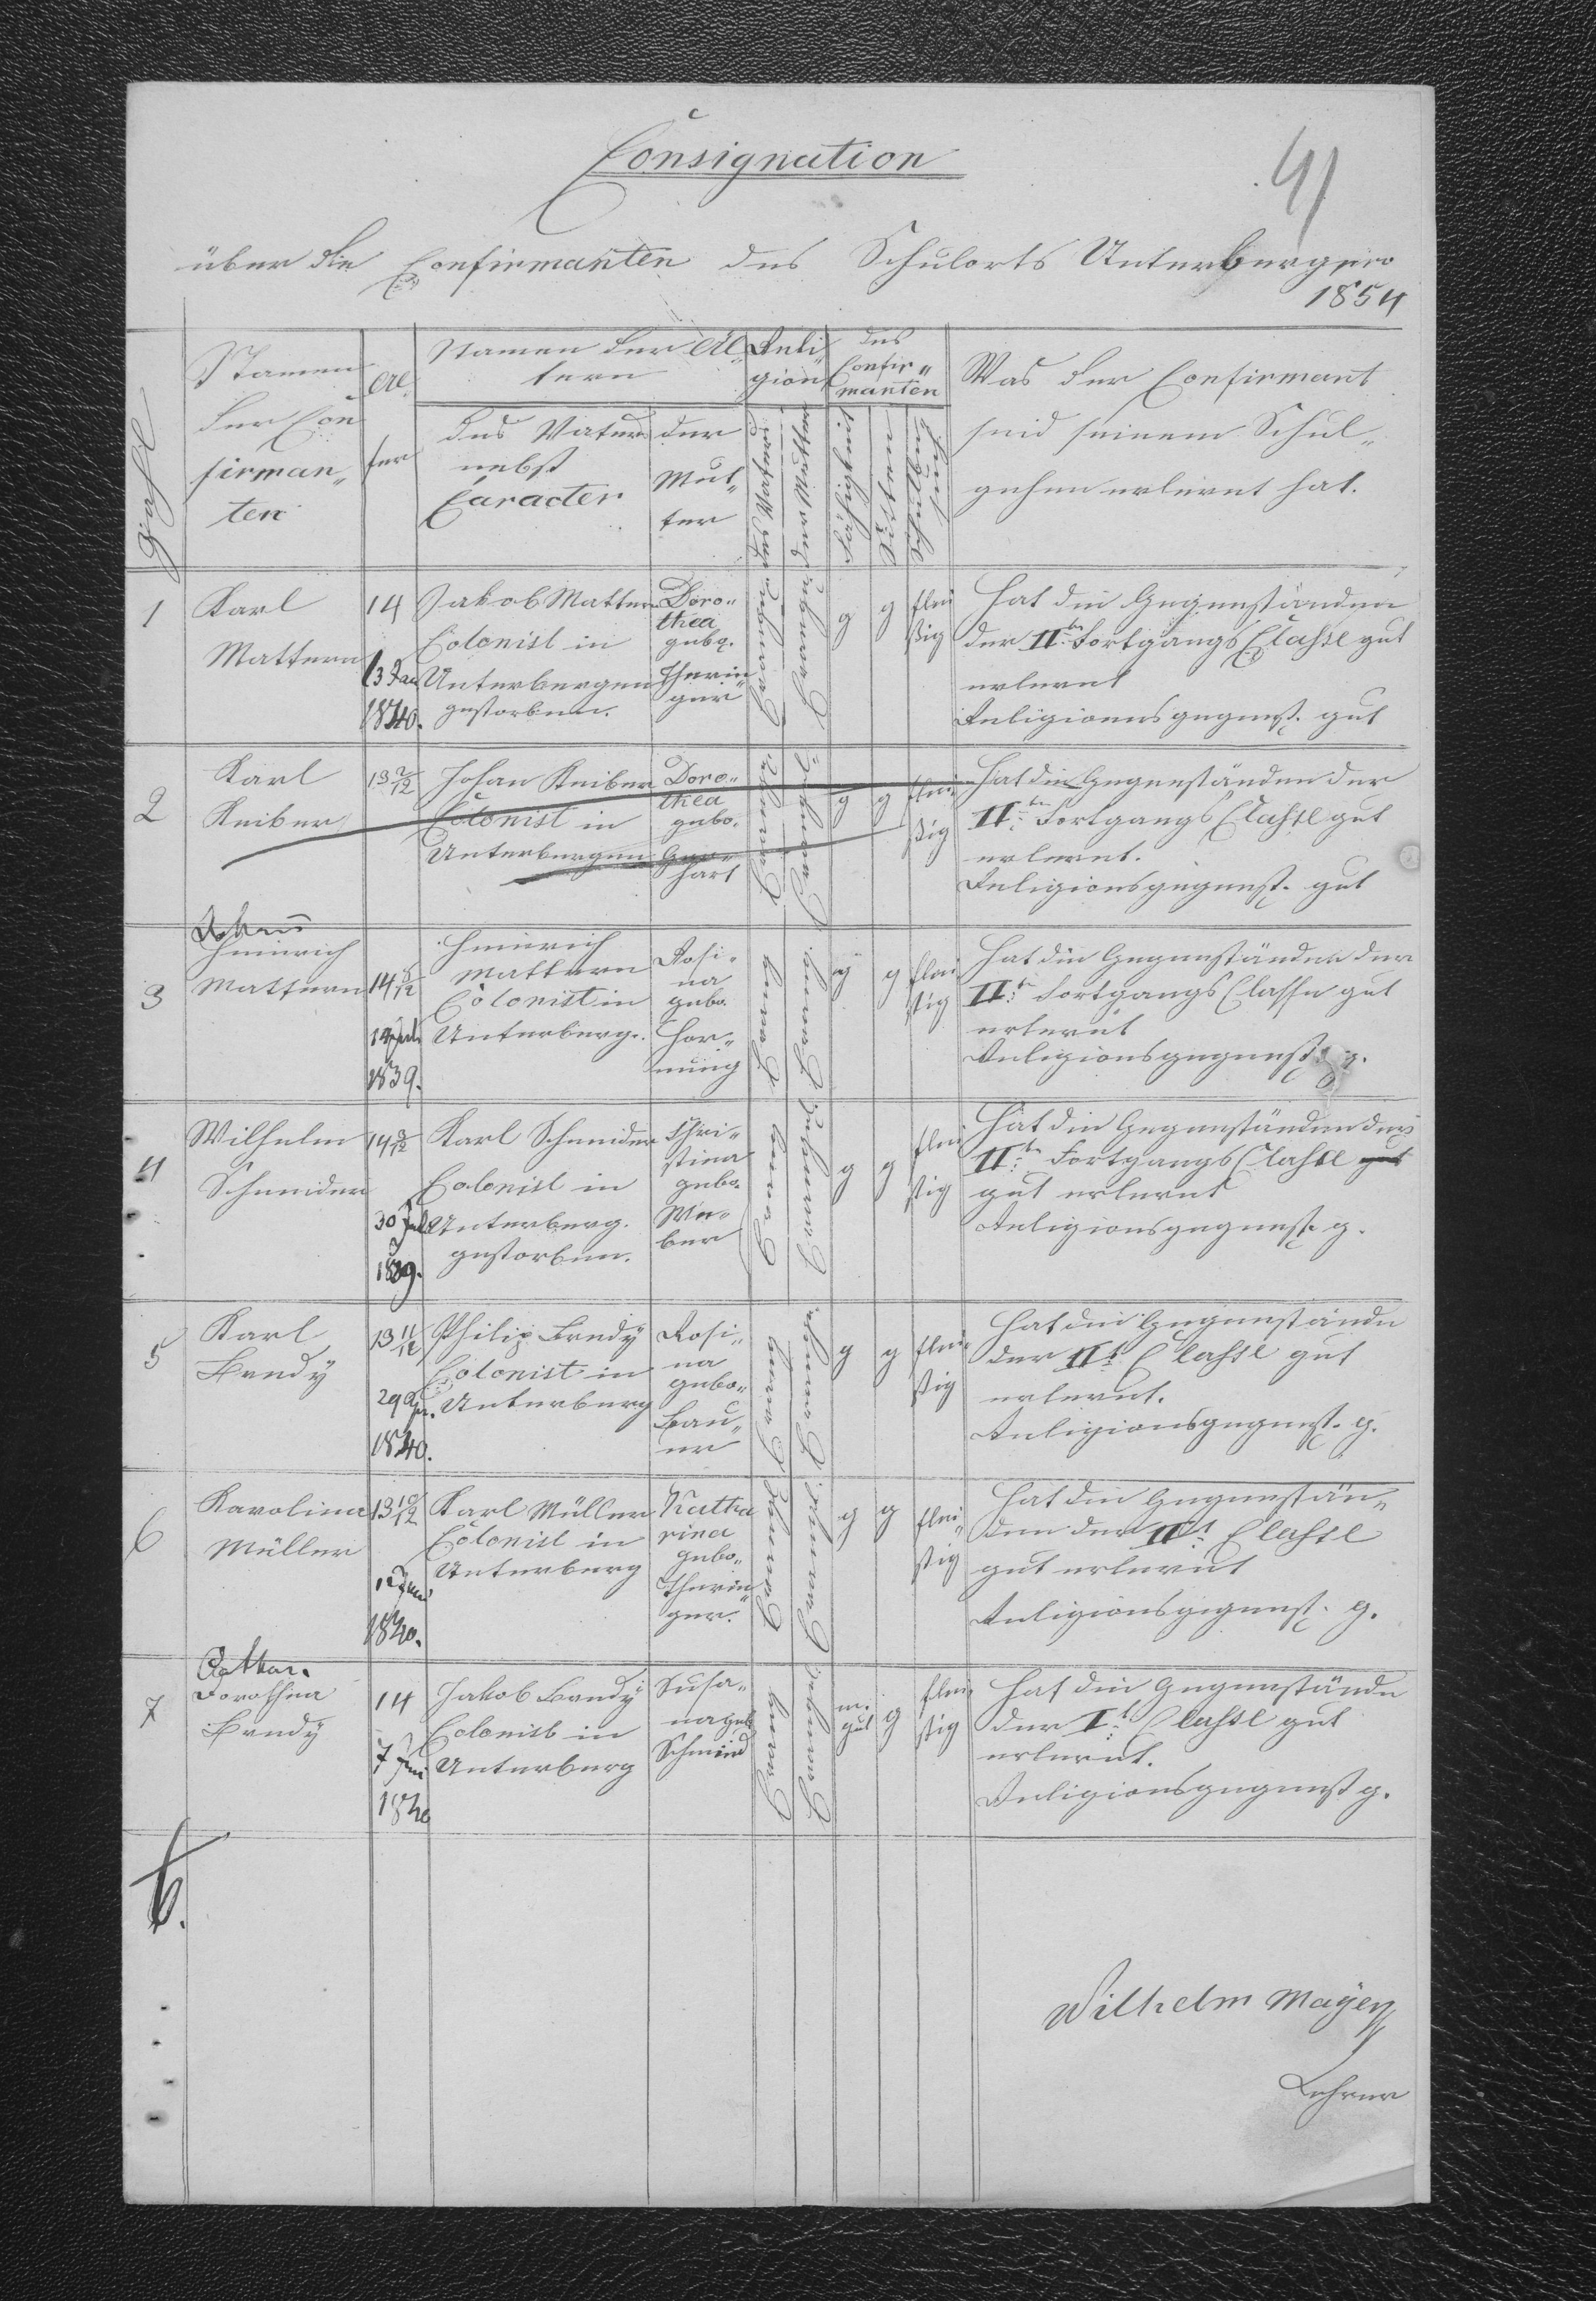 Consignation
41
über die Confirmanten des Schulorts Unterbergen pro
1854
Zahl
Namen der Confirmanten
Alter
Namen der Aeltern
des Vaters nebst Caracter
der Mutter
Religion
des Vaters
der Mutter
des Confirmanten
Fähigkeit
Sitten
Was der Confirmant
seid seinem Schul„
gehen erlernt hat.
1
Karl
Mattern
14
13 Jan
1840.
Jakob Mattern
Colonist in
Unterbergen
gestorben.
Doro„
thea
gebo.
Therin„
ger
Evangel.
Evangel.
g
g
flei
ßig
Hat die Gegenständen
der IIten Fortgangs Classe gut
erlernt
Religionsgegenst. gut
2
Karl
Reiber
13 2/12
Johan Reiber
Colonist in
Unterbergen
Doro„
thea
gebo.
Ger„
hart
Evangel.
Evangel.
g
g
flei
ßig
Hat die Gegenständen der
IIten Fortgangs Classe gut
erlernt.
Religionsgegenst. gut
3
Johann
Heinrich
Mattern
14
1839.
Heinrich
Mattern
Colonist in
Unterberg.
Rosi„
na
gebo.
Hor„
nung
Evang
Evang.
g
g
flei
ßig
Hat die Gegenständen der
IIten Fortgangs Classe gut
erlernt
Religionsgegenst. g.
4
Wilhelm
Schneider
14
30 Juli
1839.
Karl Schneider
Colonist in
Unterberg.
gestorben.
Chri„
stina
gebo.
We„
ber
Evang
Evangel.
g
g
flei
ßig
Hat die Gegenständen der
IIten Fortgangs Classe gut
gut erlernt
Religionsgegenst. g.
5
Karl
Bredy
13 11/12
29 Apr.
1840.
Philip Bredy
Colonist in
Unterberg
Rosi„
na
gebo„
Bau„
er
Evang
Evangel.
g
g
flei„
ßig
Hat die Gegenstände
der IIt Classe gut
erlernt.
Religionsgegenst. g.
6
Karolina
Müller
13 10/12
1840.
Karl Müller
Colonist in
Unterberg
Katha
rina
gebo„
Therin„
ger.
Evangel
Evangel.
g
g
flei„
ßig
Hat die Gegenstän„
den der IIt Classe
gut erlernt
Religionsgegenst. g.
7
Cathar.
Dorothea
Bredy
14
7 Juni
1840
Jakob Bredy
Colonist in
Unterberg
Susa„
na geb
Schmied
Evang
Evangel.
m.
gut
g
flei„
ßig
Hat die Gegenstände
der It Classe gut
erlernt.
Religionsgegenst g.
6.
Wilhelm Mayer
Lehrer